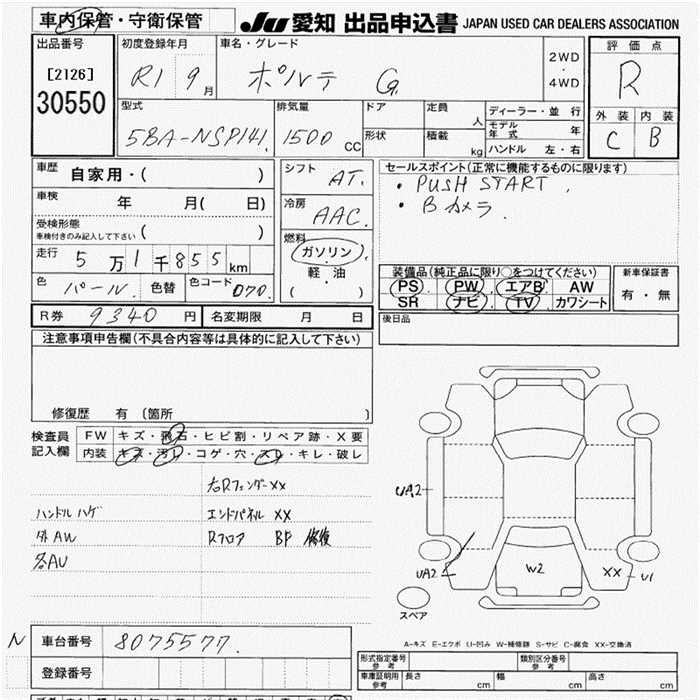 車内保管・守衛保管
JU 愛知 出品申込書 JAPAN USED CAR DEALERS ASSOCIATION
出品番号
[2126]
30550
初度登録年月
R1 9月
車名・グレード
ポルテ G
2WD
・
4WD
評価点
R
外装 内装
C B
型式
5BA-NSP141
排気量
1500 CC
ドア
形状
定員 人
積載 kg
ディーラー・並行
モデル年式 年
ハンドル 左・右
車歴
自家用・( )
車検
年 月( 日)
受検形態
車検付きのみ記入して下さい ( )
走行
5万1千855km
色 パール 色替 色コード 070
シフト AT.
冷房 AAC.
燃料
ガソリン
軽・油
( )
セールスポイント(正常に機能するものに限ります)
・PUSH START
・Bカメラ
装備品(純正品に限り○をつけてください)
PS PW エアB AW
SR ナビ TV カワシート
新車保証書
有・無
後日品
R券 9340円 名変期限 月 日
注意事項申告欄(不具合内容等は具体的に記入して下さい)
修復歴 有 (箇所 )
検査員記入欄
FW キズ・飛石・ヒビ割・リペア跡・X要
内装 キズ・汚レ・コゲ・穴・スレ・キレ・破レ
右Rフェンダーxx
ハンドルハゲ エンドパネル xx
外AW Rフロア BF 修復
各AU
UA2
UA2
W2
XX
U1
スペア
A-キズ E-エクボ U-凹み W-補修跡 S-サビ C-腐食 XX-交換済
N 車台番号 8075577
登録番号
形式指定番号 参考
類別区分番号 参考
車庫証明用 参考 長さ cm 幅 cm 高さ cm